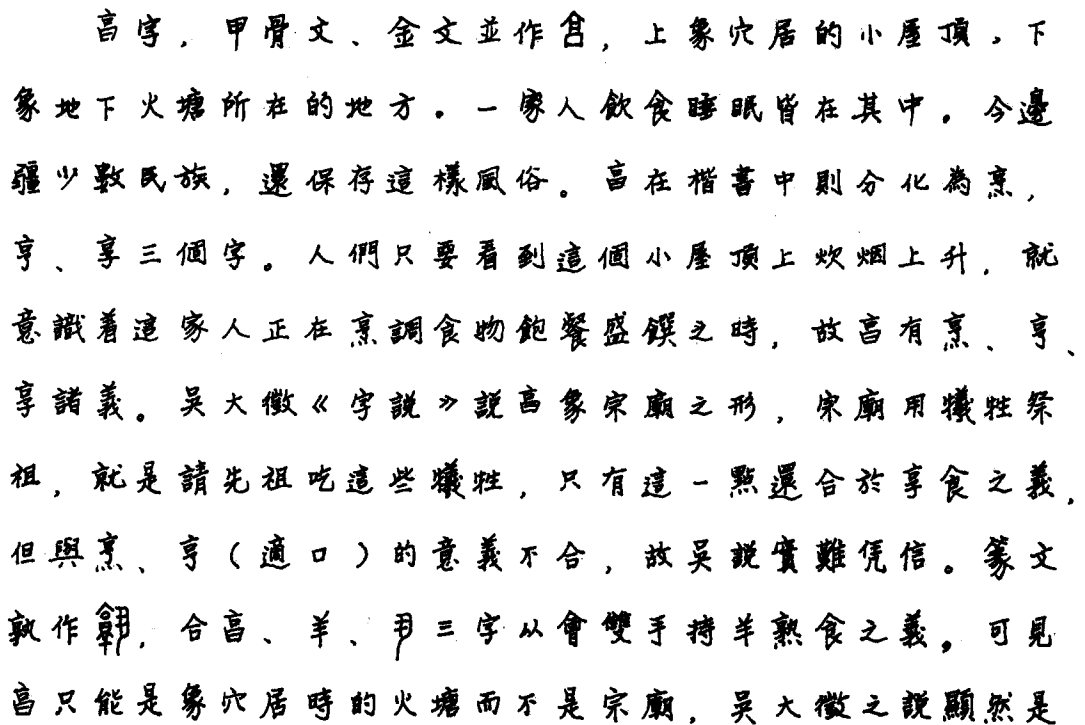 亯字，甲骨文、金文並作𠅠，上象穴居的小屋頂，下
象地下火塘所在的地方。一家人飲食睡眠皆在其中。今邊
疆少數民族，還保存這樣風俗。亯在楷書中則分化為烹，
亨、享三個字。人們只要看到這個小屋頂上炊烟上升，就
意識着這家人正在烹調食物飽餐盛饌之時，故亯有烹、亨、
享諸義。吳大徵《字說》說亯象宗廟之形，宗廟用犧牲祭
祖，就是請先祖吃這些犧牲，只有這一點還合於享食之義，
但與烹、亨（適口）的意義不合，故吳說實難凭信。篆文
孰作，合亯、羊、丮三字以會雙手持羊熟食之義。可見
亯只能是象穴居時的火塘而不是宗廟，吳大徵之說顯然是